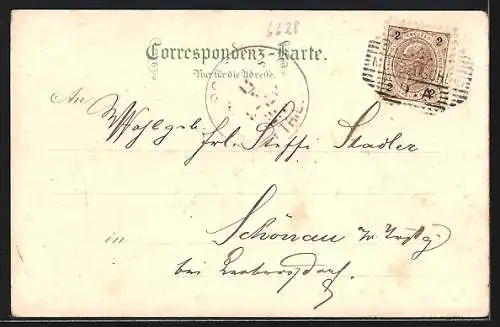 6628
Correspondenz-Karte.
Nur für die Adresse.
2 2
2 2
An
Wohlgeb
Frl. Steffi Stadler
in Schönau
bei Leobersdorf.